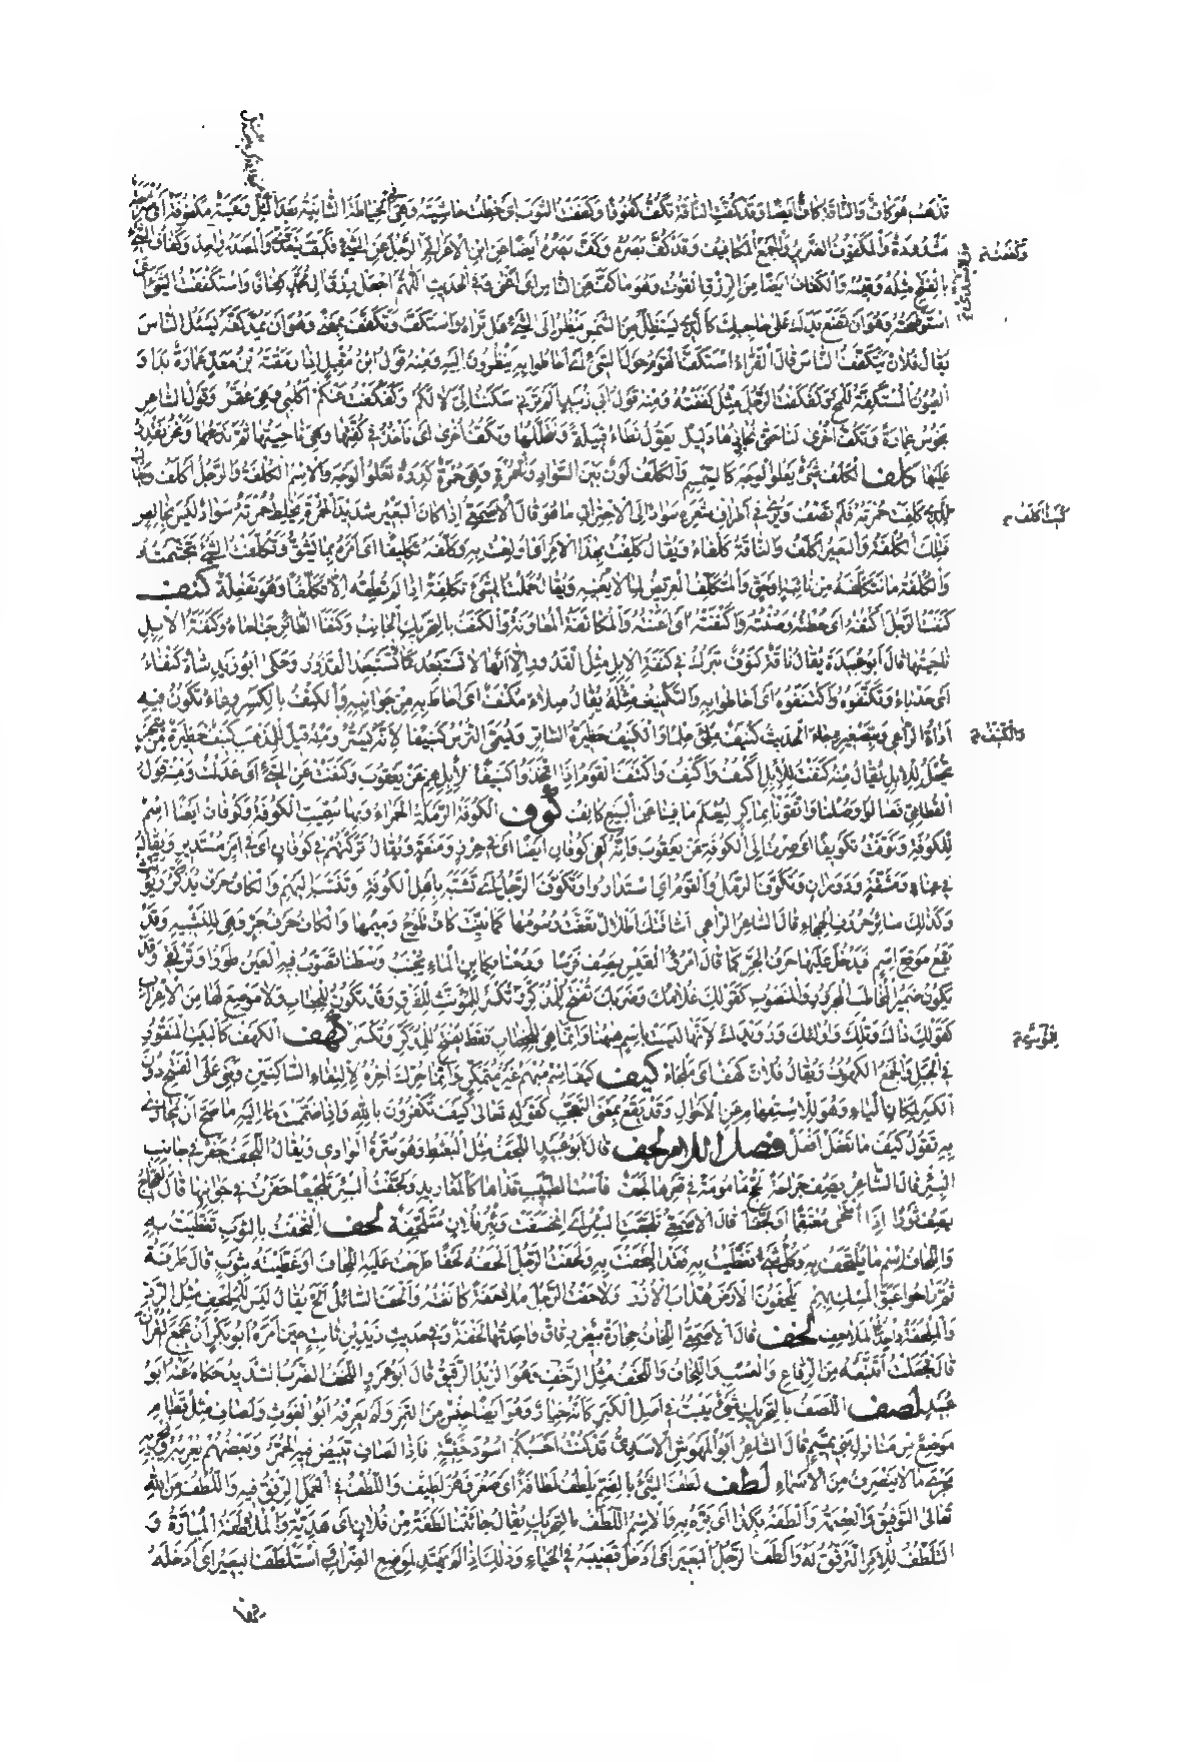 تذهب فهو كاف والناقة كاف أيضا وقد كفت الناقة تكف كفوفا وكففت الثوب أي خطت حاشيته وهي الخياطة الثانية بعد الشل وعيبة مكفوفة أي مشرجة
مشدودة والمكفوف الضرير والجمع المكافيف وقد كف بصره وكف بصره أيضا عن ابن الأعرابي وكففت الرجل عن الشيء فكف يتعدى ولا يتعدى والمصدر واحد وكفاف الشيء
بالفتح مثله وقيسه والكفاف أيضا من الرزق القوت وهو ما كف عن الناس أي أغنى وفي الحديث اللهم اجعل رزق آل محمد كفافا واستكففت الشيء
استوضحته وهو أن تضع يدك على حاجبك كالذي يستظل من الشمس ينظر إلى الشيء هل تراه واستكف وتكفف بمعنى وهو أن يمد كفه يسئل الناس
يقال فلان يتكفف الناس قال الفراء استكف القوم حول الشيء أي أحاطوا به ينظرون إليه ومنه قول ابن مقبل إذا رمقته من معد عمارة بدا و
العيون المستكفة تلمح وكفكفت الرجل مثل كففته ومنه قول أبي زبيد ألم ترني سكنت إلى لإلكم وكفكفت عنكم أكلبي وهي عقر وقول الشاعر
نجوس عمارة ونكف أخرى لنا حتى يجاوزها دليل يقول نطاء قبيلة ونتخللها ونكف أخرى أي نأخذ في كفتها وهي ناحيتها ثم ندعها ونحن نقدر
عليها كلف الكلف شيء يعلو الوجه كالسمسم والكلف لون بين السواد والحمرة وهي حمرة كدرة تعلو الوجه والاسم الكلفة والرجل أكلف ويقال
الذي كلفت حمرته فلم تصف ويرى في أطراف شعره سواد إلى الاحتراق ما هو قال الأصمعي إذا كان البعير شديد الحمرة يخلط حمرته سواد ليس بخالص
فتلك الكلفة والبعير أكلف والناقة كلفاء ويقال كلفت بهذا الأمر أي أولعت به وكلفه تكليفا أي أمره بما يشق وتكلفت الشيء تجشمته
والكلفة ما تتكلفه من نائبة أو حق والمتكلف العريض لما لا يعنيه ويقال حملت الشيء تكلفة إذا لم تطقه إلا تكلفا وهو تفعلة كنف
كنفت الرجل أكنفه أي حطته وصنته وأكنفته أي أعنته والمكانفة المعاونة والكنف بالتحريك الجانب وكنفا الطائر جناحاه وكنفة الإبل
ناحيتها قال أبو عبيدة يقال ناقة كنوف تبرك في كنفة الإبل مثل القذور إلا أنها لا تستبعد كما تستبعد القذور وحكى أبو زيد شاة كنفاء
أي حدباء وتكنفوه واكتنفوه أي أحاطوا به والتكنيف مثله يقال صلاء مكنف أي أحاط به من جوانبه والكنف بالكسر وعاء تكون فيه
أداة الراعي وبتصغيره جاء الحديث كنيف ملئ علما والكنيف حظيرة الساتر ويسمى الترس كنيفا لأنه يستر ومنه قيل للمذهب كنيف حظيرة من شجر
تجعل للإبل يقال منه كنفت للإبل أكنف وأكنف واكتنف القوم إذا اتخذوا كنيفا لإبلهم عن يعقوب وكنفت عن الشيء أي عدلت ومنه قول
القطامي فصالوا وصلنا واتقونا بماكر ليعلم ما فينا عن البيع كانف كوف الكوفة الرملة الحمراء وبها سميت الكوفة وكوفان أيضا اسم
للكوفة وكوفت تكويفا أي صرت إلى الكوفة عن يعقوب وإنه لفي كوفان أيضا أي في حرز ومنعة ويقال تركتهم في كوفان أي في أمر مستدير ويقال
في عناء ومشقة ودوران وتكوف الرمل والقوم أي استداروا وتكوف الرجل أي تشبه بأهل الكوفة وتنسب إليهم والكاف حرف يذكر ويؤنث
وكذلك سائر حروف الهجاء قال الشاعر الراعي أشاقتك أطلال تعفت رسومها كما بينت كاف تلوح وميمها والكاف حرف جر وهي للتشبيه وقد
تقع موقع اسم فيدخل عليها حرف الجر كما قال امرؤ القيس يصف فرسا ورحنا بكابن الماء يجنب وسطنا تصوب فيه العين طورا وترتقي وقد
تكون ضمير المخاطب المجرور والمنصوب كقولك غلامك وضربك تفتح للمذكر وتكسر للمؤنث للفرق وقد تكون للخطاب ولا موضع لها من الإعراب
كقولك ذلك وتلك وأولئك ورويدك لأنها ليست باسم ههنا وإنما هي للخطاب فقط تفتح للمذكر وتكسر كهف الكهف كالبيت المنقور
في الجبل والجمع الكهوف ويقال فلان كهف أي ملجاء كيف كيف اسم مبهم غير متمكن وإنما حرك آخره لالتقاء الساكنين وبني على الفتح دون
الكسر لمكان الياء وهو للاستفهام عن الأحوال وقد يقع بمعنى التعجب كقوله تعالى كيف تكفرون بالله وإذا ضممت إليه ما صح أن تجازي
به تقول كيف ما تفعل أفعل فصل اللام لجف قال أبو عبيد اللجف مثل البعثط وهو سرة الوادي ويقال اللجف حفر في جانب
البئر قال الشاعر يصف جراحة يحج مأمومة في قعرها لجف فاست الطبيب قذاها كالمغاريد ولجفت البئر تلجيفا حفرت في جوانبها قال العجاج
يصف ثورا إذا انتحى معتقما أو لجفا قال الأصمعي تلجفت البئر أي انخسفت وبئر فلان متلجفة لحف التحفت بالثوب تغطيت به
واللحاف اسم ما يلتحف به وكل شيء تغطيت به فقد التحفت به ولحفت الرجل ألحفه لحفا طرحت عليه اللحاف أو غطيته بثوب قال طرفة
ثم راحوا عبق المسك بهم يلحفون الأرض هداب الأزر ولاحفت الرجل ملاحفة كانفته وألحف السائل ألح يقال ليس للملحف مثل الرد
والملحفة واحدة الملاحف لخف قال الأصمعي اللخاف حجارة بيض رقاق واحدتها لخفة وفي حديث زيد بن ثابت حين أمره أبو بكر أن يجمع القرآن
قال فجعلت أتتبعه من الرقاع والعسب واللخاف واللخف مثل الرخف وهو الزبد الرقيق قال أبو عمرو اللخف الضرب الشديد حكاه عنه أبو
عبيد لصف اللصف بالتحريك شيء ينبت في أصل الكبر كأنه خيار وهو أيضا جنس من التمر ولم يعرفه أبو الغوث ولصاف مثل قطام
موضع من منازل بني تميم قال الشاعر أبو المهوش الأسدي قد كنت أحسبكم أسود خفية فإذا لصاف تبيض فيه الحمر وبعضهم يعربه ويجريه
مجرى ما لا ينصرف من الأسماء لطف لطف الشيء بالضم يلطف لطافة أي صغر فهو لطيف واللطف في العمل الرفق فيه واللطف من الله
تعالى التوفيق والعصمة وألطفه بكذا أي بره به والاسم اللطف بالتحريك يقال جاءتنا لطفة من فلان أي هدية والملاطفة المبارة و
التلطف للأمر الترفق له وألطف الرجل البعير أي أدخل قضيبه في الحياء وذلك إذا لم يهتد لموضع الضراب استلطف البعير أي أدخله